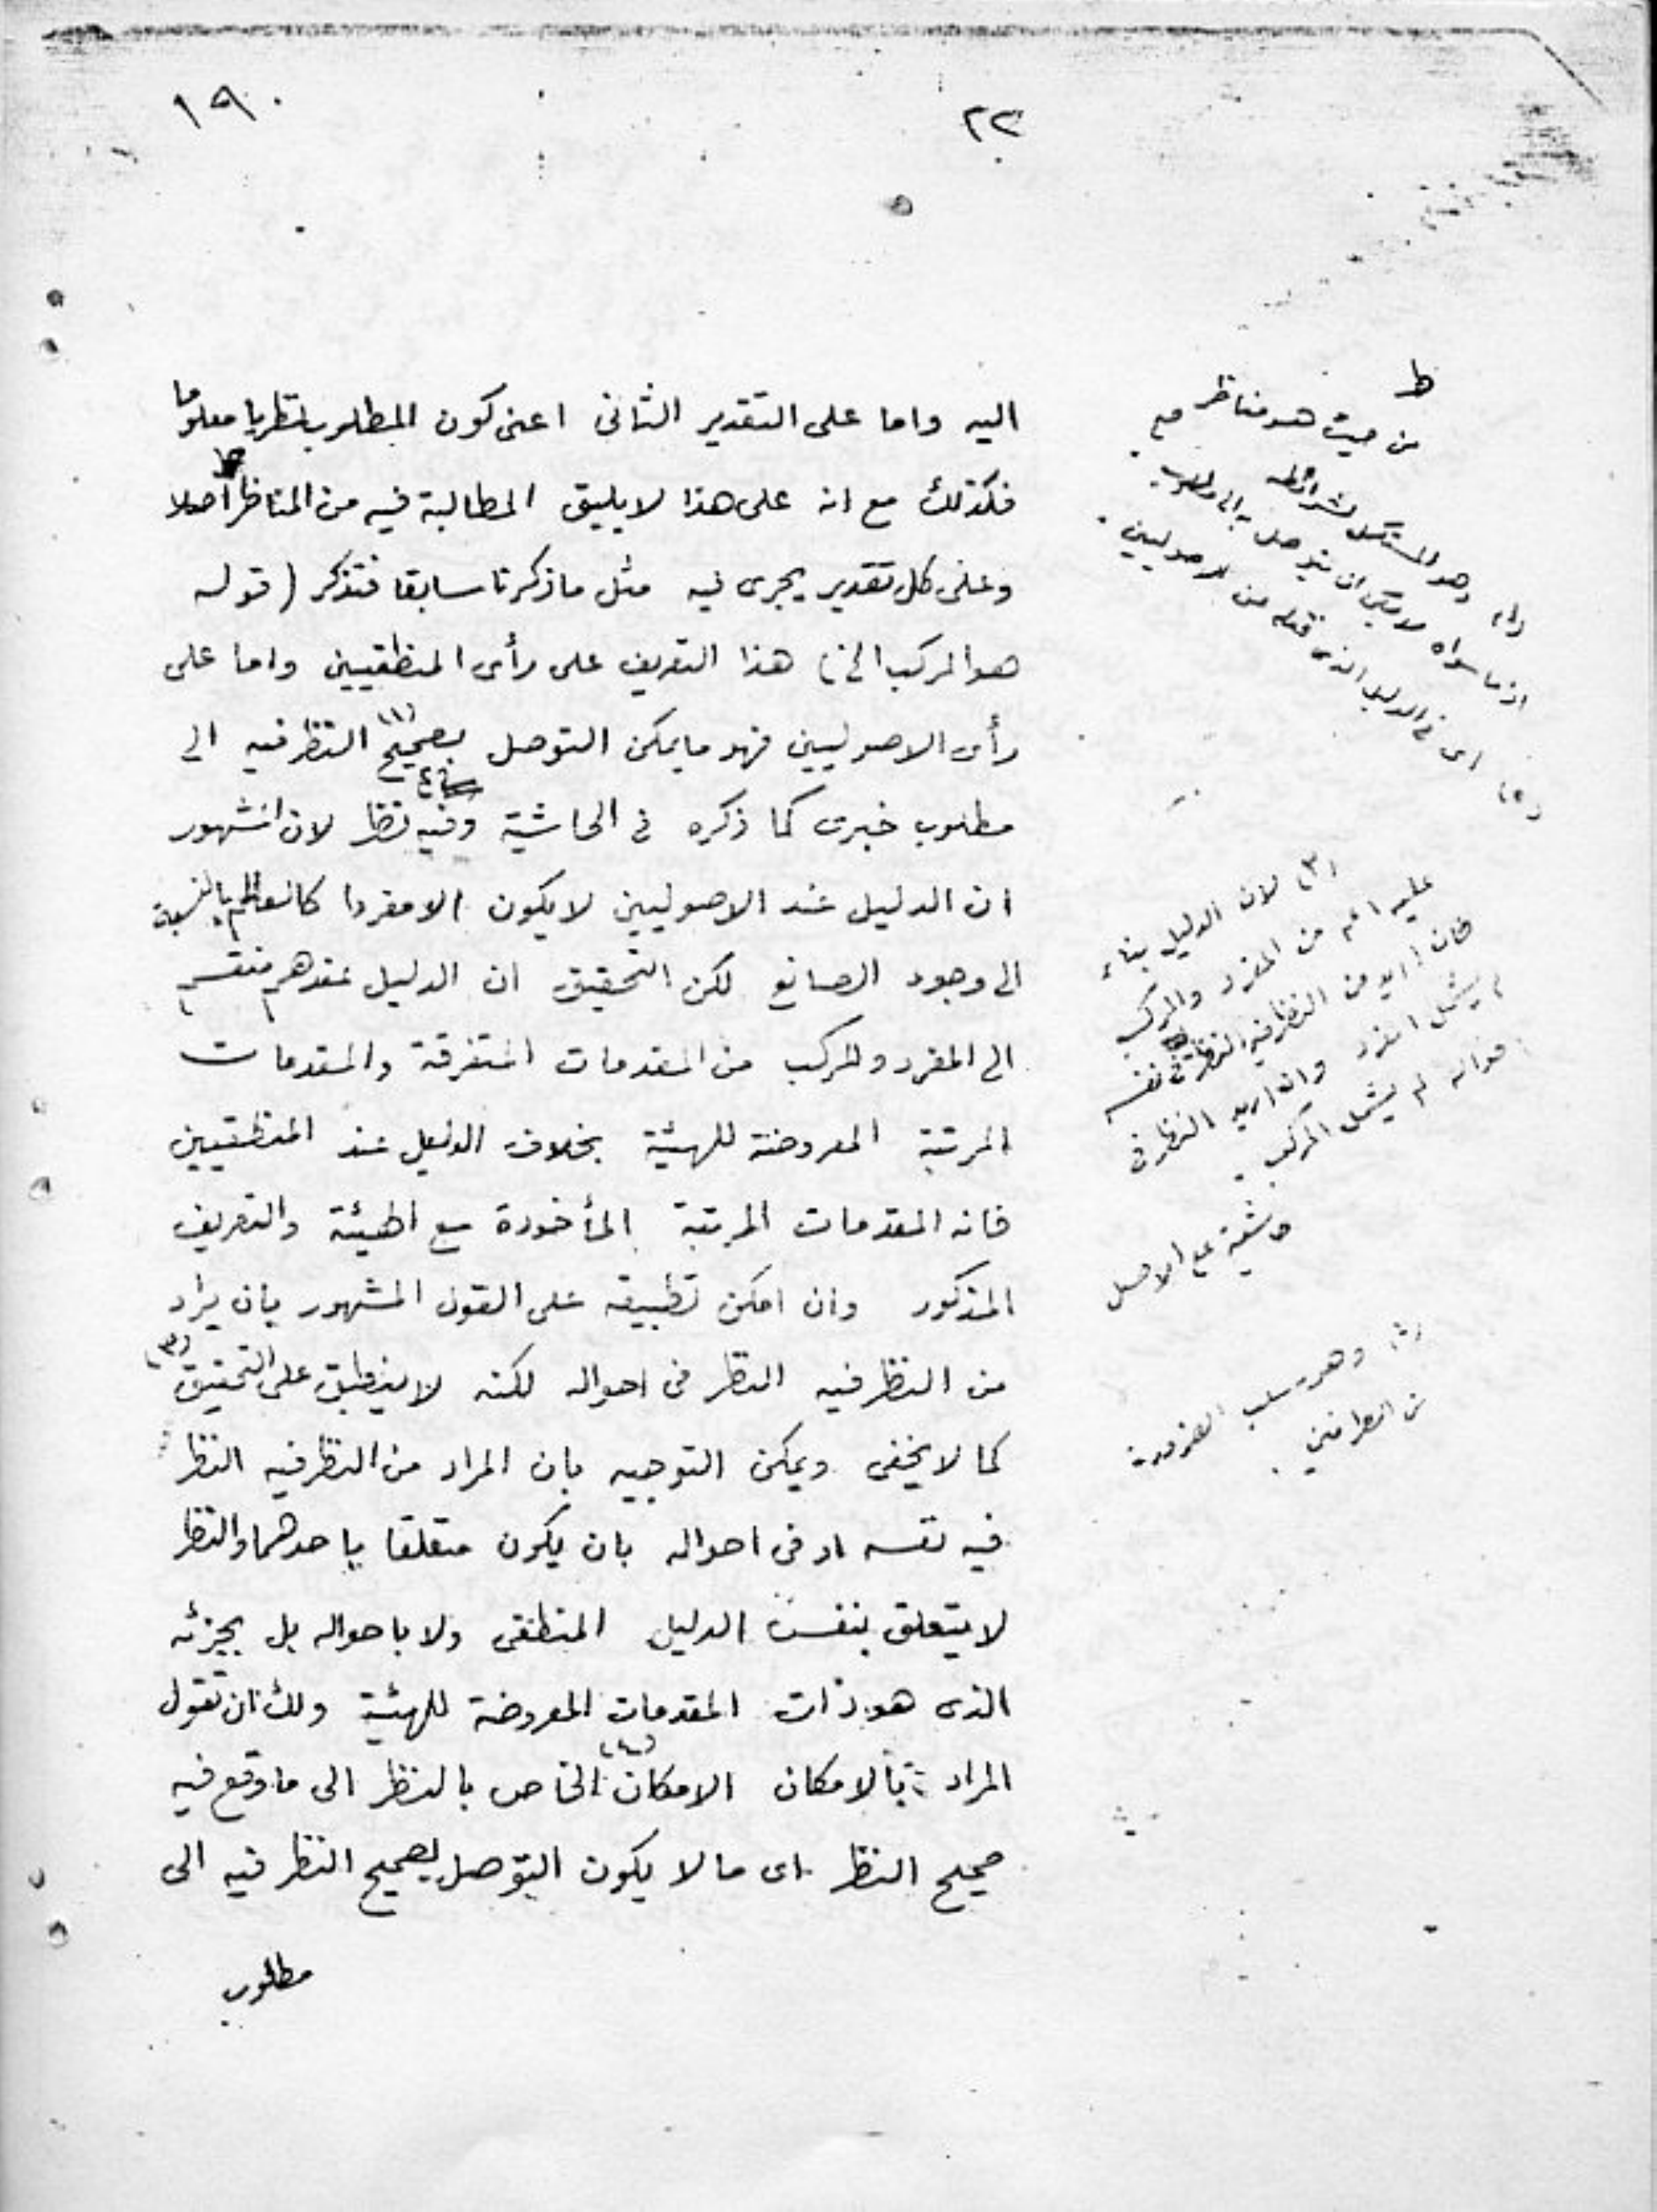 ١٩٠
٢٢
اليه واما على التقدير الثانى اعنى كون المطلوب نظريا معلوما
فكذلك مع انه على هذا لا يليق المطالبة فيه من المناظر ط اصلا
وعلى كل تقدير يجرى فيه مثل ما ذكرنا سابقا فتذكر (قوله
هو المركب الخ) هذا التعريف على رأى المنطقيين واما على
رأى الاصوليين فهو ما يمكن التوصل بصحيح (١) النظر فيه الى
مطلوب خبرى كما ذكره فى الحاشية وفيه نظر لان المشهور
ان الدليل عند الاصوليين لا يكون الا مفردا كالعالم بالنسبة
الى وجود الصانع لكن التحقيق ان الدليل عندهم منقسم
الى المفرد والمركب من المقدمات المتفرقة والمقدمات
المرتبة المعروضة للهيئة بخلاف الدليل عند المنطقيين
فانه المقدمات المرتبة المأخوذة مع الهيئة والتعريف
المذكور وان امكن تطبيقه على القول المشهور بان يراد
من النظر فيه النظر فى احواله لكنه لا ينطبق على التحقيق (٣)
كما لا يخفى ويمكن التوجيه بان المراد من النظر فيه النظر
فيه نفسه او فى احواله بان يكون متعلقا باحدهما والنظر
لا يتعلق بنفس الدليل المنطقى ولا باحواله بل بجزئه
الذى هو ذات المقدمات المعروضة للهيئة ولك ان تقول
المراد بالامكان الامكان (٤) الخاص بالنظر الى ما وقع فيه
صحيح النظر اى ما لا يكون التوصل بصحيح النظر فيه الى
مطلوب
ط
من حيث هو مناظر
(١) وهو المستكمل لشرائطه
اذ ما سواه لا يمكن ان يتوصل به الى المطلوب
اى فى الدليل الذى من الاصوليين
(٣) لان الدليل بناء
عليه اعم من المفرد والمركب
فان اريد من النظر فيه النظر فى نفسه
لم يشمل المفرد وان اريد النظر فى
احواله لم يشمل المركب
حاشية على الاصل
(٤) وهو سلب الضرورة
من الطرفين